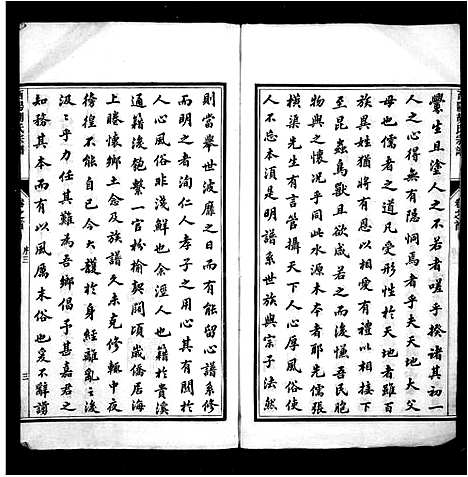 釁生且塗人之不若者嗟乎揆諸其初一
人之心得毋有隱恫焉者乎夫天地大父
母也儒者之道凡受形性於天地者雖百
族異姓必其相愛有禮以相接下
至昆蟲愚且欲咸若之而後慊吾民胞
物與之懷況乎同此水源木本者耶先儒張
橫渠有云管攝天下人心厚風俗使
人不忘本須是明譜系世族與宗子法然
則當舉世波靡之日而能留心譜系修
而明之者洵仁人孝子之用心其有禆於
人心風俗非淺鮮也余涇人也籍於貴溪
通籍後匏繫一官枌榆契闊頃歲僑居海
上睠懷鄉土念及族譜久未克修輒中夜
徬徨不能去懷也今大馥於身經離亂之後
汲汲乎力任其難為吾鄉倡予甚嘉君之
知務其本而有以風厲末俗也爰不辭譾
卷之首
序三
三